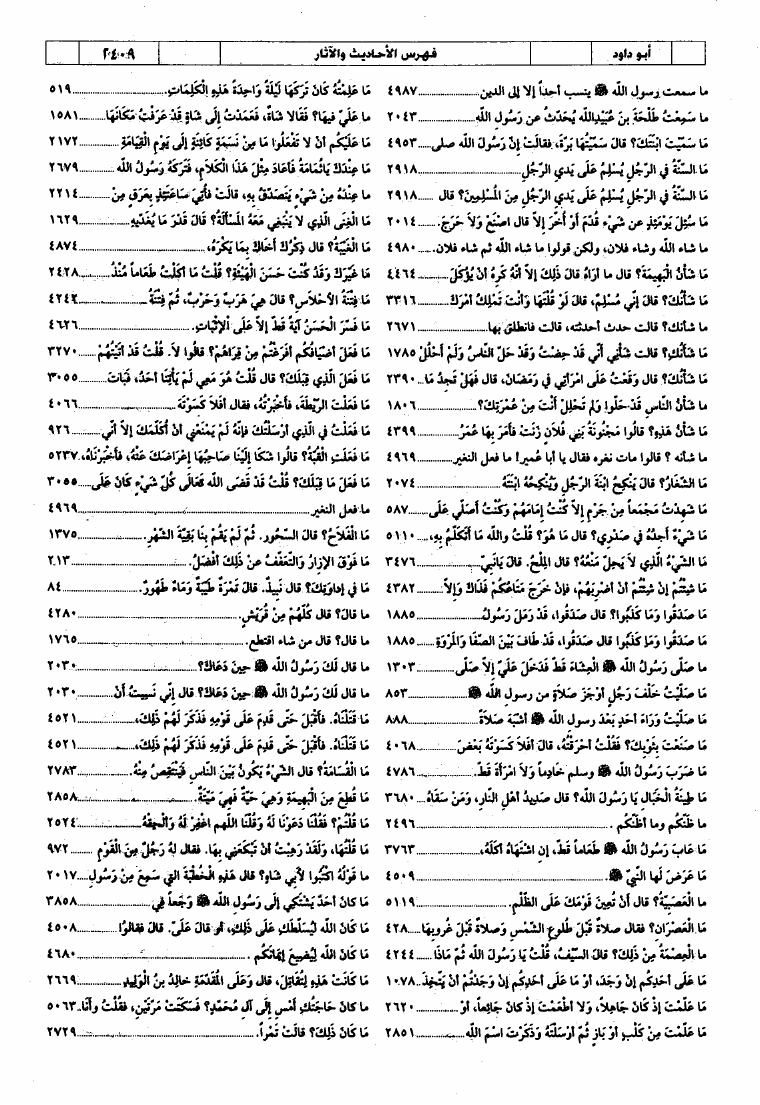 أبو داود
فهرس الأحاديث والآثار
٢٠٤٠٠٩
ما سمعت رسول الله ﷺ ينسب أحداً إلا إلى الدين ٤٩٨٧
مَا سَمِعْتُ طَلْحَةَ بنَ عُبَيْدِاللهِ يُحَدِّثُ عن رَسُولِ اللهِ ٢٠٤٣
مَا سَمَّيْتَ ابْنَتَكَ؟ قالَ سَمَّيْتُهَا بَرَّةَ، فقالَتْ إنَّ رَسُولَ الله صلى ٤٩٥٣
مَا السُّنَّةُ في الرَّجُلِ يُسْلِمُ عَلَى يَدَيِ الرَّجُلِ ٢٩١٨
مَا السُّنَّةُ في الرَّجُلِ يُسْلِمُ عَلَى يَدَيِ الرَّجُلِ مِنَ المُسْلِمِينَ؟ قالَ ٢٩١٨
مَا سُئِلَ يَوْمَئِذٍ عن شَيْءٍ قُدِّمَ أوْ أُخِّرَ إلاَّ قال اصْنَعْ وَلاَ حَرَجَ. ٢٠١٤
ما شاء الله وشاء فلان، ولكن قولوا ما شاء الله ثم شاء فلان. ٤٩٨٠
مَا شَأنُ الْبَهِيمَةِ؟ قال ما أرَاهُ قالَ ذَلِكَ إلاَّ أنَّهُ كَرِهَ أنْ يُؤْكَلَ ٤٤٦٤
مَا شَأنُكَ؟ قالَ إنِّي مُسْلِمٌ، قالَ لَوْ قُلْتَهَا وَأنْتَ تَمْلِكُ أمْرَكَ ٣٣١٦
ما شأنك؟ قالت حدث أحدثته، قالت فانطلق بها ٢٦٧١
مَا شَأنُكِ؟ قالت شَأنِي أنِّي قَدْ حِضْتُ وقَدْ حَلَّ النَّاسُ وَلَمْ أحْلُلْ ١٧٨٥
مَا شَأنُكَ؟ قالَ وَقَعْتُ عَلَى امْرَأتِي في رَمَضَانَ، قال فَهَلْ تَجِدُ مَا ٢٣٩٠
ما شَأنُ النَّاسِ قَدْ حَلُّوا وَلَمْ تَحْلِلْ أنْتَ مِنْ عُمْرَتِكَ؟ ١٨٠٦
مَا شَأنُ هَذِهِ؟ قالُوا مَجْنُونَةُ بَنِي فُلاَنٍ زَنَتْ فأمَرَ بِهَا عُمَرُ ٤٣٩٩
ما شأنه ؟ قالوا مات نغره فقال يا أبا عمير! ما فعل النغير ٤٩٦٩
مَا الشِّغَارُ؟ قالَ يَنْكِحُ ابْنَةَ الرَّجُلِ وَيُنْكِحُهُ ابْنَتَهُ ٢٠٧٤
مَا شَهِدْتُ مَجْمَعاً مِنْ جَرْمٍ إلاَّ كُنْتُ إمَامَهُمْ وَكُنْتُ أُصَلِّي عَلَى ٥٨٧
مَا شَيْءٌ أجِدُهُ في صَدْرِي؟ قال مَا هُوَ؟ قُلْتُ والله مَا أتَكَلَّمُ بِهِ، ٥١١٠
مَا الشَّيْءُ الَّذِي لاَ يَحِلُّ مَنْعُهُ؟ قال المِلْحُ. قالَ يَانَبِيَّ ٣٤٧٦
مَا شِئْتُمْ إنْ شِئْتُمْ أنْ أضْرِبَهُمْ، فإنْ خَرَجَ مَتَاعُكُم فَذَاكَ وَإلاَّ ٤٣٨٢
مَا صَدَقُوا وَمَا كَذَبُوا؟ قال صَدَقُوا، قَدْ رَمَلَ رَسُولُ ١٨٨٥
مَا صَدَقُوا وَمَا كَذَبُوا؟ قالَ صَدَقُوا، قَدْ طَافَ بَيْنَ الصَّفَا وَالمَرْوَةِ ١٨٨٥
ما صَلَّى رَسُولُ الله ﷺ الْعِشَاءَ قَطُّ فَدَخَلَ عَلَيَّ إلاَّ صَلَّى ١٣٠٣
مَا صَلَّيْتُ خَلْفَ رَجُلٍ أوْجَزَ صَلاَةً من رسولِ الله ﷺ ٨٥٣
مَا صَلَّيْتُ وَرَاءَ أحَدٍ بَعْدَ رسولِ الله ﷺ أشْبَهَ صَلاَةً ٨٨٨
مَا صَنَعْتَ بِثَوْبِكَ؟ فَقُلْتُ أحْرَقْتُهُ، قالَ أفَلاَ كَسَوْتَهُ بَعْضَ ٤٠٦٨
مَا ضَرَبَ رَسُولُ الله ﷺ وسلم خادِماً وَلاَ امْرَأةً قَطُّ. ٤٧٨٦
مَا طِينَةُ الْخَبَالِ يَا رَسُولَ الله؟ قال صَدِيدُ أهْلِ النَّارِ، وَمَنْ سَقَاهُ ٣٦٨٠
ما ظَنُّكُم وما أظُنُّكُم . ٢٤٩٦
مَا عَابَ رَسُولُ الله ﷺ طَعَاماً قَطُّ، إنِ اشْتَهَاهُ أكَلَهُ، ٣٧٦٣
مَا عَرَضَ لَها النَّبيُّ ﷺ. ٤٥٠٩
مَا الْعَصَبِيَّةُ؟ قال أنْ تُعِينَ قَوْمَكَ عَلَى الظُّلْمِ. ٥١١٩
مَا الْعَصْرَانِ؟ فقال صلاةٌ قَبْلَ طُلُوعِ الشَّمْسِ وَصلاةٌ قَبْلَ غُرُوبِهَا ٤٢٨
ما الْعِصْمَةُ مِنْ ذَلِكَ؟ قالَ السَّيْفُ، قُلْتُ يَا رَسُولَ الله ثُمَّ مَاذَا ٤٢٤٤
مَا عَلَى أحَدِكُم إنْ وَجَدَ، أوْ مَا عَلَى أحَدِكُم إنْ وَجَدْتُمْ أنْ يَتَّخِذَ ١٠٧٨
مَا عَلَّمْتَ إذْ كَانَ جَاهِلاً، وَلاَ أطْعَمْتَ إذْ كَانَ جَائِعاً، أوْ ٢٦٢٠
مَا عَلَّمْتَ مِنْ كَلْبٍ أوْ بَازٍ ثُمَّ أرْسَلْتَهُ وَذَكَرْتَ اسْمَ الله ٢٨٥١
مَا عَلِمْتُهُ كَانَ تَرَكَهَا لَيْلَةً وَاحِدَةً هَذِهِ الْكَلِمَاتِ. ٥١٩
ما عَلَيَّ فِيهَا؟ فَقَالا شَاةٌ، فَعَمَدْتُ إلَى شَاةٍ قَدْ عَرَفْتُ مَكَانَهَا ١٥٨١
مَا عَلَيْكُم أنْ لا تَفْعَلُوا مَا مِنْ نَسَمَةٍ كَائِنَةٍ إلَى يَوْمِ الْقِيَامَةِ ٢١٧٢
مَا عِنْدَكَ يَاثُمَامَةُ فأعَادَ مِثْلَ هَذَا الْكَلاَمِ، فَتَرَكَهُ رَسُولُ الله ٢٦٧٩
ما عِنْدَهُ مِنْ شَيْءٍ يَتَصَدَّقُ بِهِ، قالَتْ فأُتِيَ سَاعَتَئِذٍ بِعَرَقٍ مِنْ ٢٢١٤
مَا الْغِنَى الَّذِي لا يَنْبَغِي مَعَهُ المَسْألَةُ؟ قالَ قَدْرَ مَا يُغَدِّيهِ ١٦٢٩
مَا الْغِيبَةُ؟ قال ذِكْرُكَ أخَاكَ بِمَا يَكْرَهُ، ٤٨٧٤
مَا غَيَّرَكَ وَقَدْ كُنْتَ حَسَنَ الْهَيْئَةِ؟ قُلْتُ مَا أكَلْتُ طَعَاماً مُنْذُ ٢٤٢٨
مَا فِتْنَةُ الأحْلاَسِ؟ قال هِيَ هَرَبٌ وَحَرَبٌ، ثُمَّ فِتْنَةُ ٤٢٤٢
مَا فَسَّرَ الْحَسَنُ آيَةً قَطُّ إلاَّ عَلَى الإثْبَاتِ. ٤٦٢٦
مَا فَعَلَ أضْيَافُكُم أفَرَغْتُمْ مِنْ قِرَاهُمْ؟ قالُوا لاَ. قُلْتُ قَدْ أتَيْتُهُمْ ٣٢٧٠
مَا فَعَلَ الَّذِي قِبَلَكَ؟ قال قُلْتُ هُوَ مَعِي لَمْ يَأْتِنَا أحَدٌ، فَبَاتَ ٣٠٥٥
مَا فَعَلَتِ الرَّيْطَةُ، فأخْبَرْتُهُ، فقال أفَلاَ كَسَوْتَهَ ٤٠٦٦
مَا فَعَلْتَ في الَّذِي أرْسَلْتُكَ فإنَّهُ لَمْ يَمْنَعْنِي أنْ أُكَلِّمَكَ إلاَّ أنِّي ٩٢٦
مَا فَعَلَتِ الْقُبَّةُ؟ قالُوا شَكَا إلَيْنَا صَاحِبُهَا إعْرَاضَكَ عَنْهُ، فأخْبَرْنَاهُ، ٥٢٣٧
مَا فَعَلَ مَا قِبَلَكَ؟ قُلْتُ قَدْ قَضَى الله تَعَالَى كُلَّ شَيْءٍ كَانَ عَلَى ٣٠٥٥
ما فعل النغير ٤٩٦٩
مَا الْفَلاَحُ؟ قالَ السَّحُورُ. ثُمَّ لَمْ يَقُمْ بِنَا بَقِيَّةَ الشَّهْرِ. ١٣٧٥
مَا فَوْقَ الإزَارِ وَالتَّعَفُّفُ عن ذَلِكَ أفْضَلُ. ٢١٣
مَا في إدَاوَتِكَ؟ قال نَبِيذٌ. قالَ تَمْرَةٌ طَيِّبَةٌ وَمَاءٌ طَهُورٌ. ٨٤
ما قالَ؟ قال كُلُّهُمْ مِنْ قُرَيْشٍ. ٤٢٨٠
ما قال؟ قال من شاء اقتطع. ١٧٦٥
مَا قالَ لَكَ رَسُولُ الله ﷺ حِينَ دَعَاكَ؟ ٢٠٣٠
مَا قالَ لَكَ رَسُولُ الله ﷺ حِينَ دَعَاكَ؟ قال إنِّي نَسِيتُ أنْ ٢٠٣٠
مَا قَتَلْنَاهُ. فأقْبَلَ حَتَّى قَدِمَ عَلَى قَوْمِهِ فَذَكَرَ لَهُمْ ذَلِكَ، ٤٥٢١
مَا قَتَلْنَاهُ. فأقْبَلَ حَتَّى قَدِمَ عَلَى قَوْمِهِ فَذَكَرَ لَهُمْ ذَلِكَ، ٤٥٢١
مَا الْقُسَامَةُ؟ قال الشَّيْءُ يَكُونُ بَيْنَ النَّاسِ فَيَنْتَقِصُ مِنْهُ. ٢٧٨٣
مَا قُطِعَ مِنَ الْبَهِيمَةِ وَهِيَ حَيَّةٌ فَهِيَ مَيْتَةٌ. ٢٨٥٨
مَا قُلْتُمْ؟ فَقُلْنَا دَعَوْنَا لَهُ وَقُلْنَا اللّهم اغْفِرْ لَهُ وَألْحِقْهُ ٢٥٢٤
مَا قُلْتُهَا، وَلَقَدْ رَهِبْتُ أنْ تَبْكَعَنِي بِهَا. فقال لهُ رَجُلٌ مِنَ الْقَوْمِ ٩٧٢
ما قَوْلُهُ اكْتُبُوا لأبِي شَاهٍ؟ قال هَذِهِ الْخُطْبَةُ التي سَمِعَ مِنْ رَسُولِ ٢٠١٧
مَا كَانَ أحَدٌ يَشْتَكِي إلَى رَسُولِ الله ﷺ وَجَعاً فِي ٣٨٥٨
مَا كَانَ الله لِيُسَلِّطَكِ عَلَى ذَلِكِ، أو قالَ عَلَيَّ. فقالُوا ٤٥٠٨
مَا كانَ الله لِيُضِيعَ إيمَانَكُمْ . ٤٦٨٠
مَا كَانَتْ هَذِهِ لِتُقَاتِلَ، قال وَعَلَى المُقَدِّمَةِ خالِدُ بنُ الْوَلِيدِ ٢٦٦٩
ما كانَ حَاجَتُكِ أمْسِ إلَى آلِ مُحَمَّدٍ؟ فَسَكَتَتْ مَرَّتَيْنِ، فقُلْتُ وأنَا ٥٠٦٣
مَا كانَ ذَلِكَ؟ قالَتْ تَمْراً. ٢٧٢٩